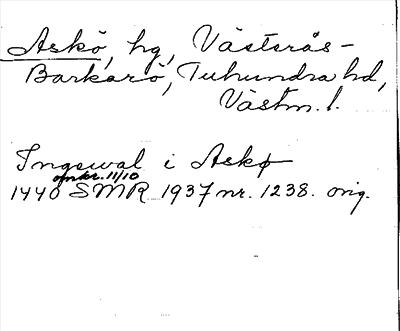 Askö, hg, Västerås-
Barkarö, Tuhundra hd,
Västm. l.
Ingewal i Askø
omkr. 11/10
1440 SMR 1937 nr. 1238. orig.